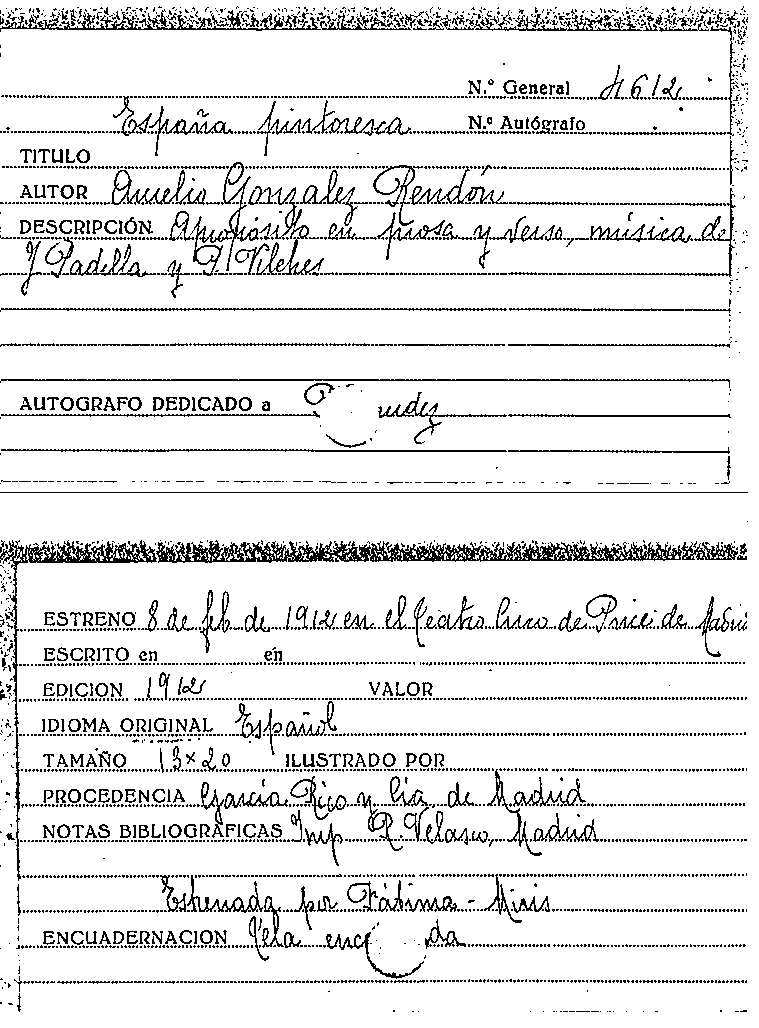 N.º General 4612
España pintoresca N.º Autógrafo
TITULO
AUTOR Aurelio Gonzalez Rendón
DESCRIPCIÓN Apropósito en prosa y verso, música de
J Padilla y P. Vilches
AUTOGRAFO DEDICADO a
ESTRENO 8 de feb de 1912 en el Teatro Circo de Price de Madrid
ESCRITO en en
EDICION 1912 VALOR
IDIOMA ORIGINAL Español
TAMAÑO 13×20 ILUSTRADO POR
PROCEDENCIA García Rico y Cía de Madrid
NOTAS BIBLIOGRÁFICAS Imp R. Velasco, Madrid
Estrenada por Fátima - Miris
ENCUADERNACION Tela